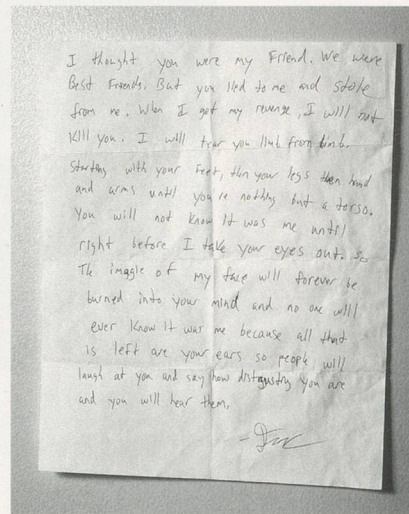 I thought you were my Friend. We were
Best Friends. But you lied to me and stole
from me. When I get my revenge, I will not
Kill you. I will tear you limb from limb.
Starting with your Feet, then your legs then hand
and arms until you're nothing but a torso.
You will not know it was me until
right before I take your eyes out. So
The imagie of my face will forever be
burned into your mind and no one will
ever know it was me because all that
is left are your ears so people will
laugh at you and say how distgusting you are
and you will hear them.